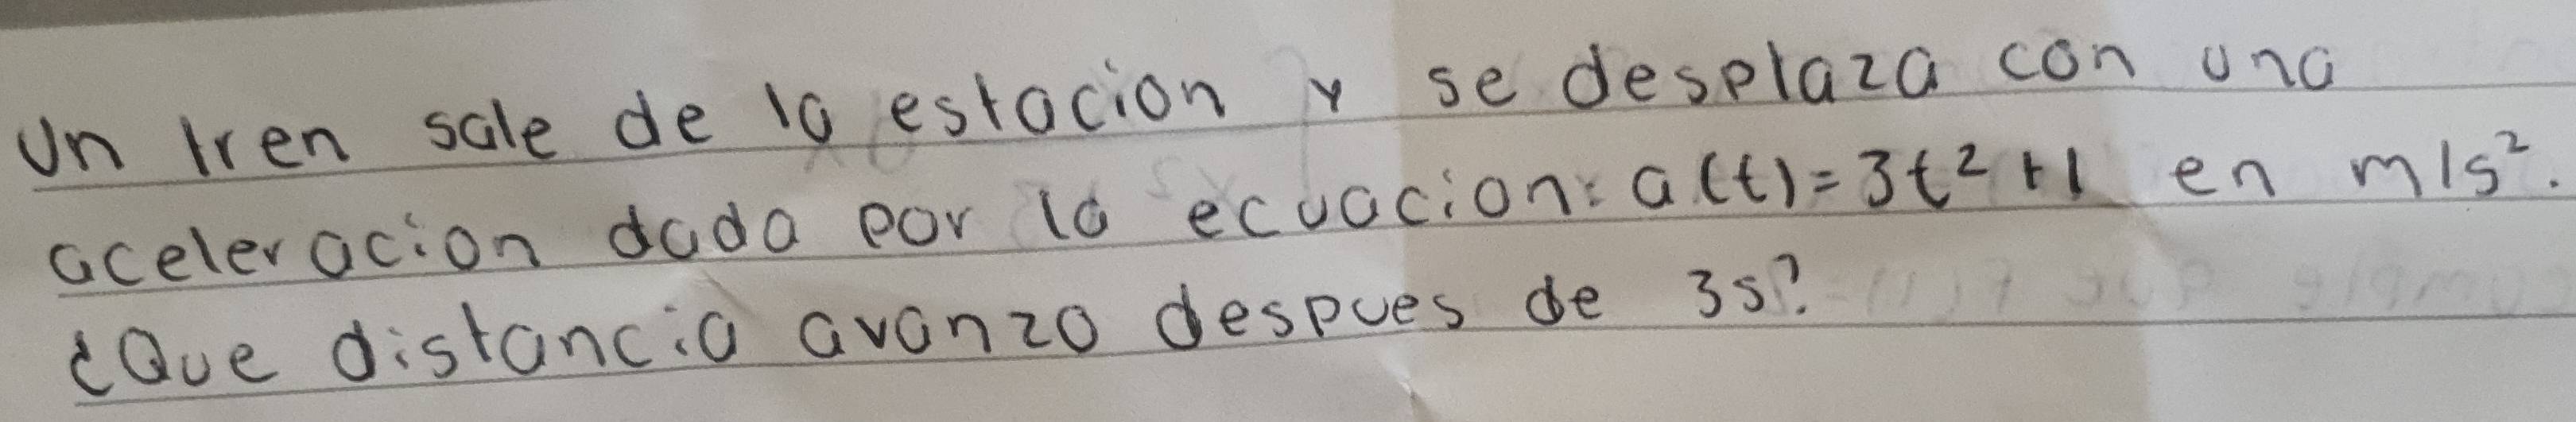 Un tren sale de la estacion y se desplaza con una
aceleracion dada por la ecuacion: a(t)=3t²+1 en m/s².
¿Que distancia avanzo despues de 3s?